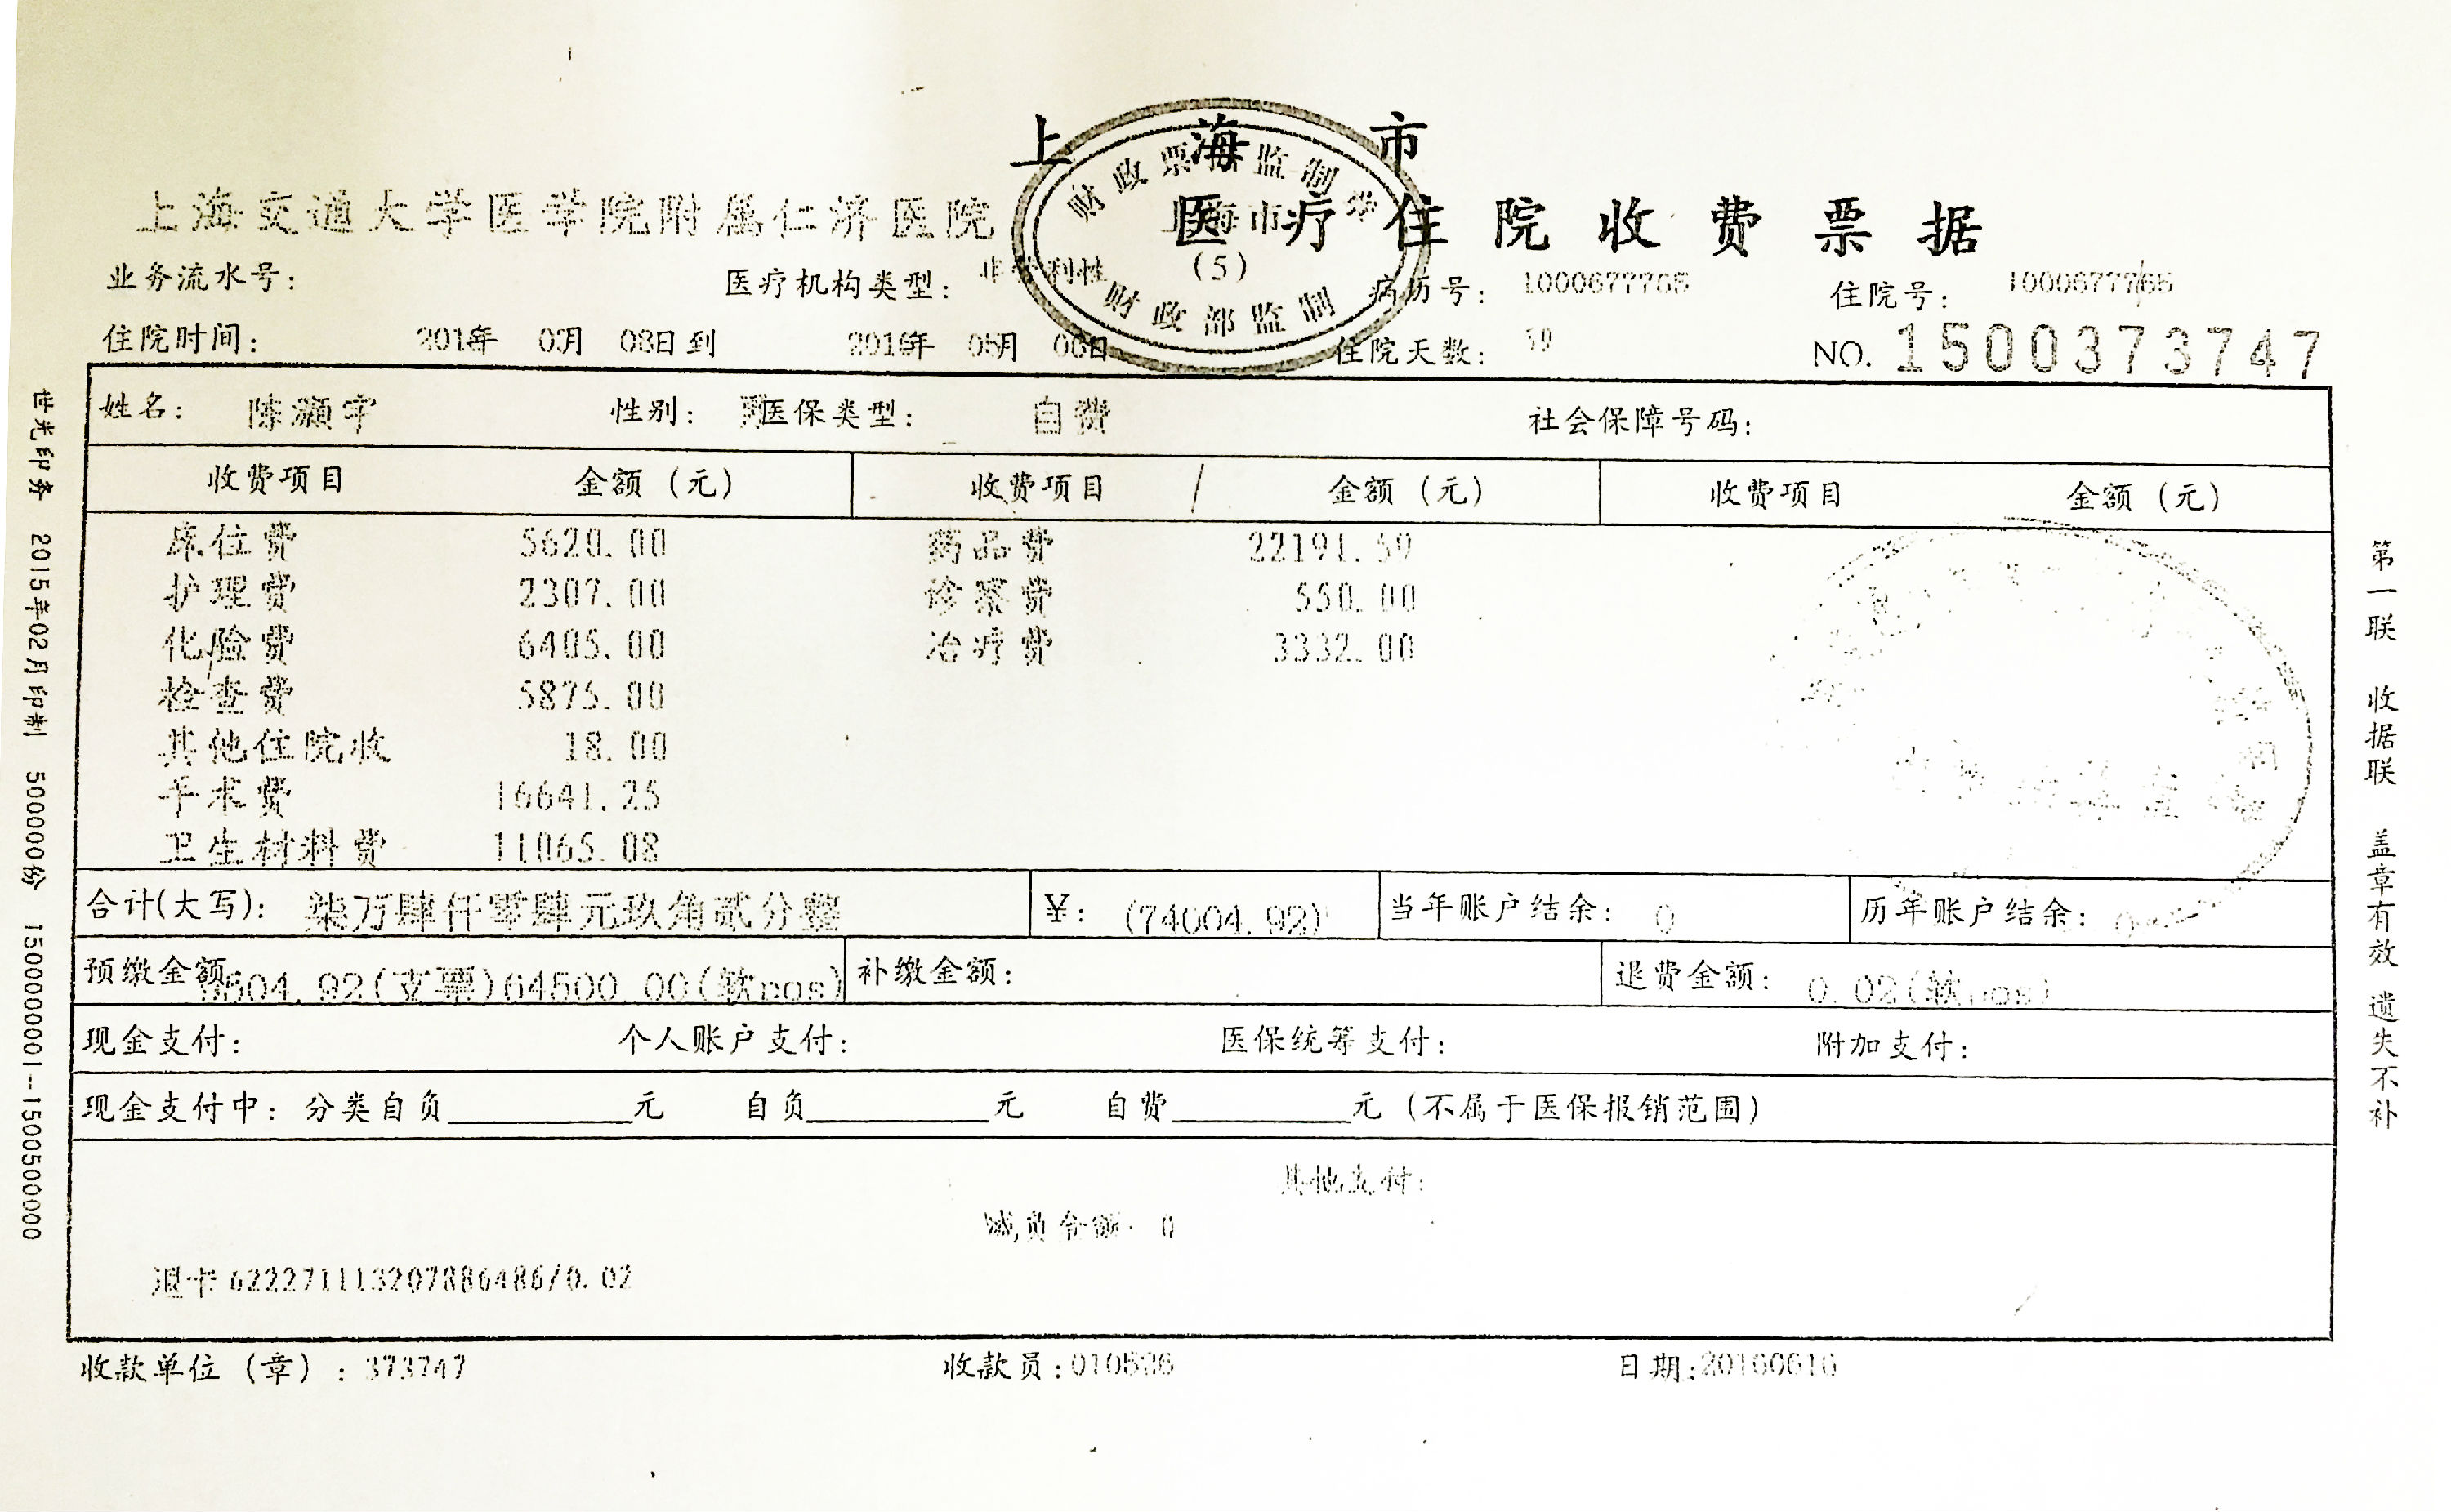 上海市
上海交通大学医学院附属仁济医院 医疗住院收费票据
财政票据监制章
上海市
(5)
财政部监制
业务流水号: 医疗机构类型: 非营利性 病历号: 1000677765 住院号: 1000677765
住院时间: 2016年 03月 08日到 2016年 05月 06日 住院天数: 59 NO. 1500373747
姓名: 陈灏宇 性别: 医保类型: 自费 社会保障号码:
收费项目 金额(元) 收费项目 金额(元) 收费项目 金额(元)
床位费 5620.00 药品费 22191.59
护理费 2307.00 诊察费 550.00
化验费 6405.00 治疗费 3332.00
检查费 5875.00
其他住院收 18.00
手术费 16641.25
卫生材料费 11065.08
合计(大写): 柒万肆仟零肆元玖角贰分整 ¥: (74004.92) 当年账户结余: 0 历年账户结余: 0
预缴金额: 9504.92(支票)64500.00(软pos) 补缴金额: 退费金额: 0.02(软pos)
现金支付: 个人账户支付: 医保统筹支付: 附加支付:
现金支付中: 分类自负 元 自负 元 自费 元 (不属于医保报销范围)
其他支付:
减负金额: 0
退卡6222711132078886486/0.02
收款单位(章): 373747 收款员: 日期:20160616
世光印务 2015年02月印制 500000份 1500000001--1500500000
第一联 收据联 盖章有效 遗失不补